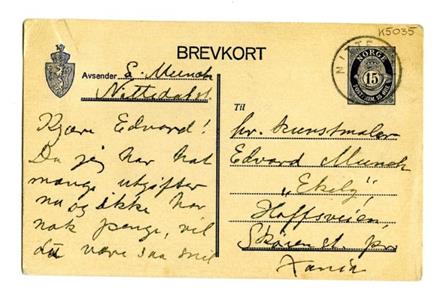 K5035
BREVKORT
Avsender E. Munch
Nittedal st.
Kjære Edvard!
Da jeg har hat
mange utgifter
nu og ikke har
nok penge, vil
du være saa snil
NITTE
NORGE
15
Til
hr. kunstmaler
Edvard Munch
"Ekely",
Hoffsveien,
Skøien st. pr
Xania